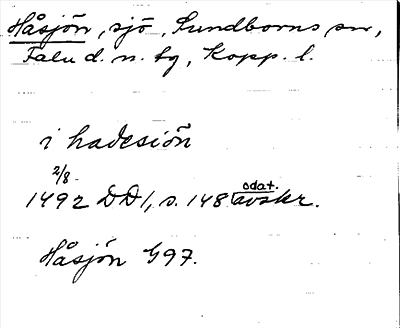 Håsjön, sjö, Sundborns sn,
Falu d. n. tg, Kopp. l.
i hadesiön
2/8
1492 DD1, s. 148 odat. avskr.
Håsjön G97.